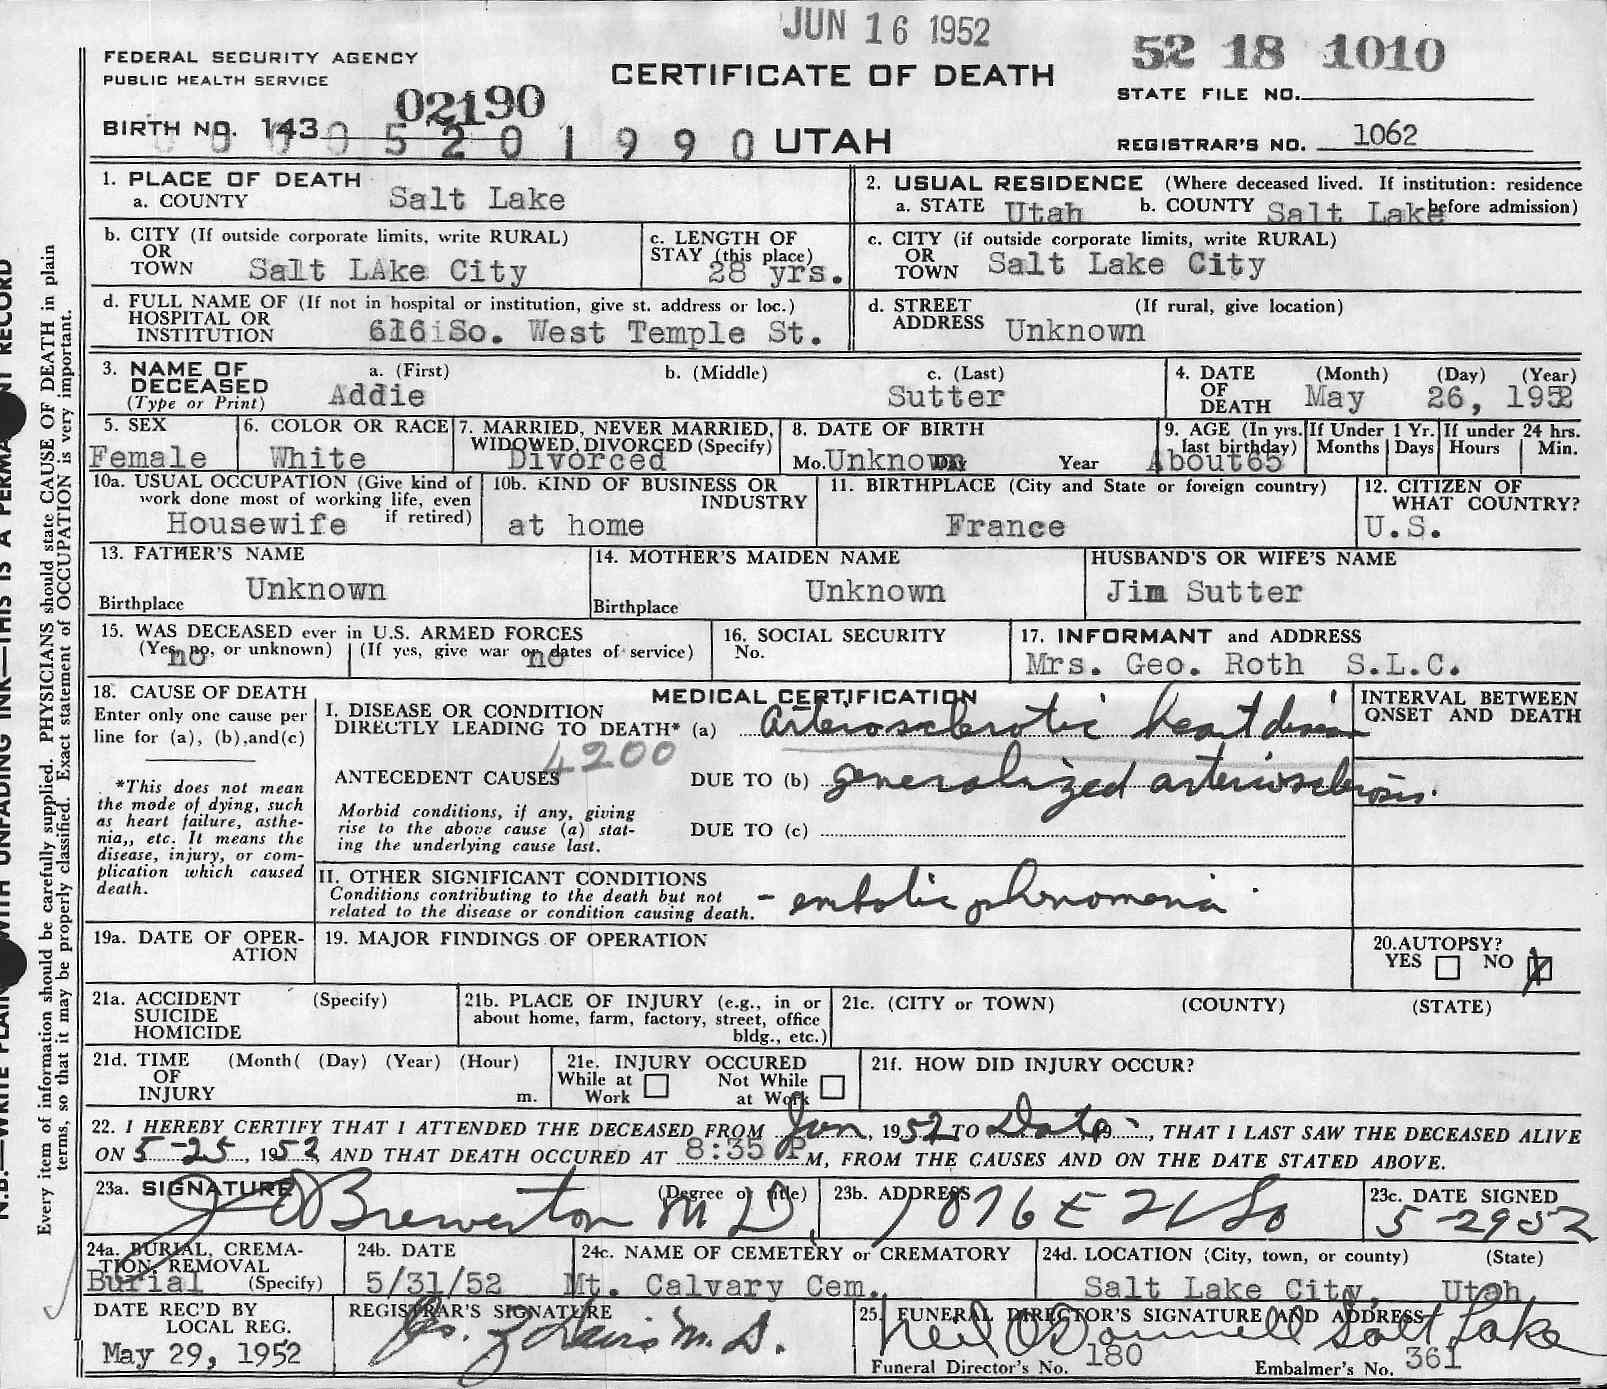 JUN 16 1952
FEDERAL SECURITY AGENCY
PUBLIC HEALTH SERVICE
CERTIFICATE OF DEATH
52 18 1010
STATE FILE NO.
02190
BIRTH NO. 143
5201990 UTAH
REGISTRAR'S NO. 1062
1. PLACE OF DEATH
a. COUNTY Salt Lake
2. USUAL RESIDENCE (Where deceased lived. If institution: residence before admission)
a. STATE Utah b. COUNTY Salt Lake
b. CITY (If outside corporate limits, write RURAL)
OR
TOWN Salt LAke City
c. LENGTH OF
STAY (this place)
28 yrs.
c. CITY (if outside corporate limits, write RURAL)
OR
TOWN Salt Lake City
d. FULL NAME OF (If not in hospital or institution, give st. address or loc.)
HOSPITAL OR
INSTITUTION 616 So. West Temple St.
d. STREET (If rural, give location)
ADDRESS Unknown
3. NAME OF a. (First) b. (Middle) c. (Last)
DECEASED
(Type or Print) Addie Sutter
4. DATE (Month) (Day) (Year)
OF
DEATH May 26, 1952
5. SEX
Female
6. COLOR OR RACE
White
7. MARRIED, NEVER MARRIED,
WIDOWED, DIVORCED (Specify)
Divorced
8. DATE OF BIRTH
Mo. Unknown Day Year
9. AGE (In yrs.
last birthday)
About 65
If Under 1 Yr.
Months Days
If under 24 hrs.
Hours Min.
10a. USUAL OCCUPATION (Give kind of
work done most of working life, even
if retired)
Housewife
10b. KIND OF BUSINESS OR
INDUSTRY
at home
11. BIRTHPLACE (City and State or foreign country)
France
12. CITIZEN OF
WHAT COUNTRY?
U.S.
13. FATHER'S NAME
Unknown
Birthplace
14. MOTHER'S MAIDEN NAME
Unknown
Birthplace
HUSBAND'S OR WIFE'S NAME
Jim Sutter
15. WAS DECEASED ever in U.S. ARMED FORCES
(Yes, no, or unknown) (If yes, give war or dates of service)
no no
16. SOCIAL SECURITY
No.
17. INFORMANT and ADDRESS
Mrs. Geo. Roth S.L.C.
18. CAUSE OF DEATH
Enter only one cause per
line for (a), (b), and (c)
*This does not mean
the mode of dying, such
as heart failure, asthe-
nia,, etc. It means the
disease, injury, or com-
plication which caused
death.
MEDICAL CERTIFICATION
I. DISEASE OR CONDITION
DIRECTLY LEADING TO DEATH* (a) arteriosclerotic heart disease
4200
ANTECEDENT CAUSES DUE TO (b) generalized arteriosclerosis.
Morbid conditions, if any, giving
rise to the above cause (a) stat-
ing the underlying cause last.
DUE TO (c)
II. OTHER SIGNIFICANT CONDITIONS
Conditions contributing to the death but not
related to the disease or condition causing death. - embolic phenomena
INTERVAL BETWEEN
ONSET AND DEATH
19a. DATE OF OPER-
ATION
19. MAJOR FINDINGS OF OPERATION
20. AUTOPSY?
YES NO X
21a. ACCIDENT (Specify)
SUICIDE
HOMICIDE
21b. PLACE OF INJURY (e.g., in or
about home, farm, factory, street, office
bldg., etc.)
21c. (CITY or TOWN) (COUNTY) (STATE)
21d. TIME (Month( (Day) (Year) (Hour)
OF
INJURY m.
21e. INJURY OCCURED
While at Work
Not While at Work
21f. HOW DID INJURY OCCUR?
22. I HEREBY CERTIFY THAT I ATTENDED THE DECEASED FROM Jan, 1952 TO Date 19, THAT I LAST SAW THE DECEASED ALIVE
ON 5-25, 1952, AND THAT DEATH OCCURED AT 8:35 P M, FROM THE CAUSES AND ON THE DATE STATED ABOVE.
23a. SIGNATURE (Degree or title)
Brewerton M D.
23b. ADDRESS
1076 E 21 So
23c. DATE SIGNED
5-29 52
24a. BURIAL, CREMA-
TION, REMOVAL
Burial (Specify)
24b. DATE
5/31/52
24c. NAME OF CEMETERY or CREMATORY
Mt. Calvary Cem.
24d. LOCATION (City, town, or county) (State)
Salt Lake City, Utah
DATE REC'D BY
LOCAL REG.
May 29, 1952
REGISTRAR'S SIGNATURE
Davis M.D.
25. FUNERAL DIRECTOR'S SIGNATURE AND ADDRESS
Neil O'Donnell Salt Lake
Funeral Director's No. 180 Embalmer's No. 361
Every item of information should be carefully supplied. PHYSICIANS should state CAUSE OF DEATH in plain
terms, so that it may be properly classified. Exact statement of OCCUPATION is very important.